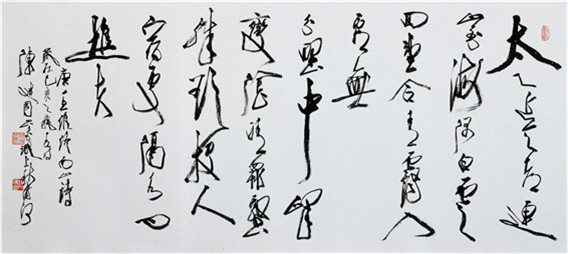 太乙近天都連
山至海隅白雲
回望合青靄入
看無
分野中峰
變陰晴衆壑
殊欲投人
宿處隔水問
樵夫
唐王維終南山詩
歲在己亥之秋
陳建國